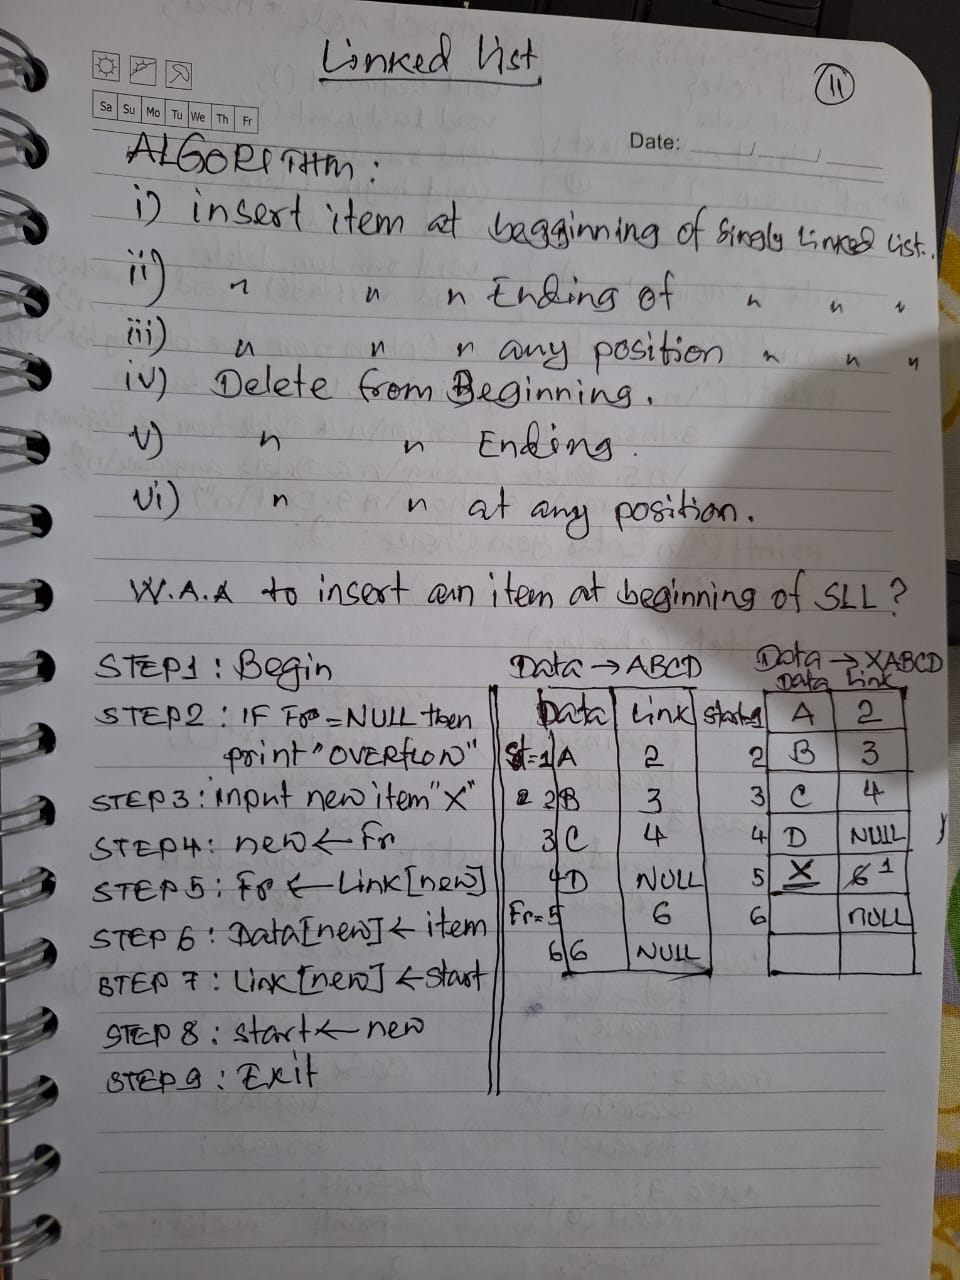 Linked List
11
Sa Su Mo Tu We Th Fr
Date:
ALGORITHM:
i) insert item at bagginning of Singly Linked List.
ii) " " " Ending of " " "
iii) " " " any position " " "
iv) Delete from Beginning.
v) " " Ending.
vi) " " at any position.
W.A.A to insert an item at beginning of SLL?
STEP1: Begin
STEP2: IF Fr=NULL then
print "OVERFLOW"
STEP3: input new item "X"
STEP4: new ← Fr
STEP5: Fr ← Link[new]
STEP 6: Data[new] ← item
STEP 7: Link[new] ← Start
STEP 8: start ← new
STEP 9: Exit
Data → ABCD
Data Link
St=1 A 2
2 B 3
3 C 4
4 D NULL
Fr=5 6
6 6 NULL
Data → XABCD
Data Link
A 2
2 B 3
3 C 4
4 D NULL
5 X 6 1
6 NULL